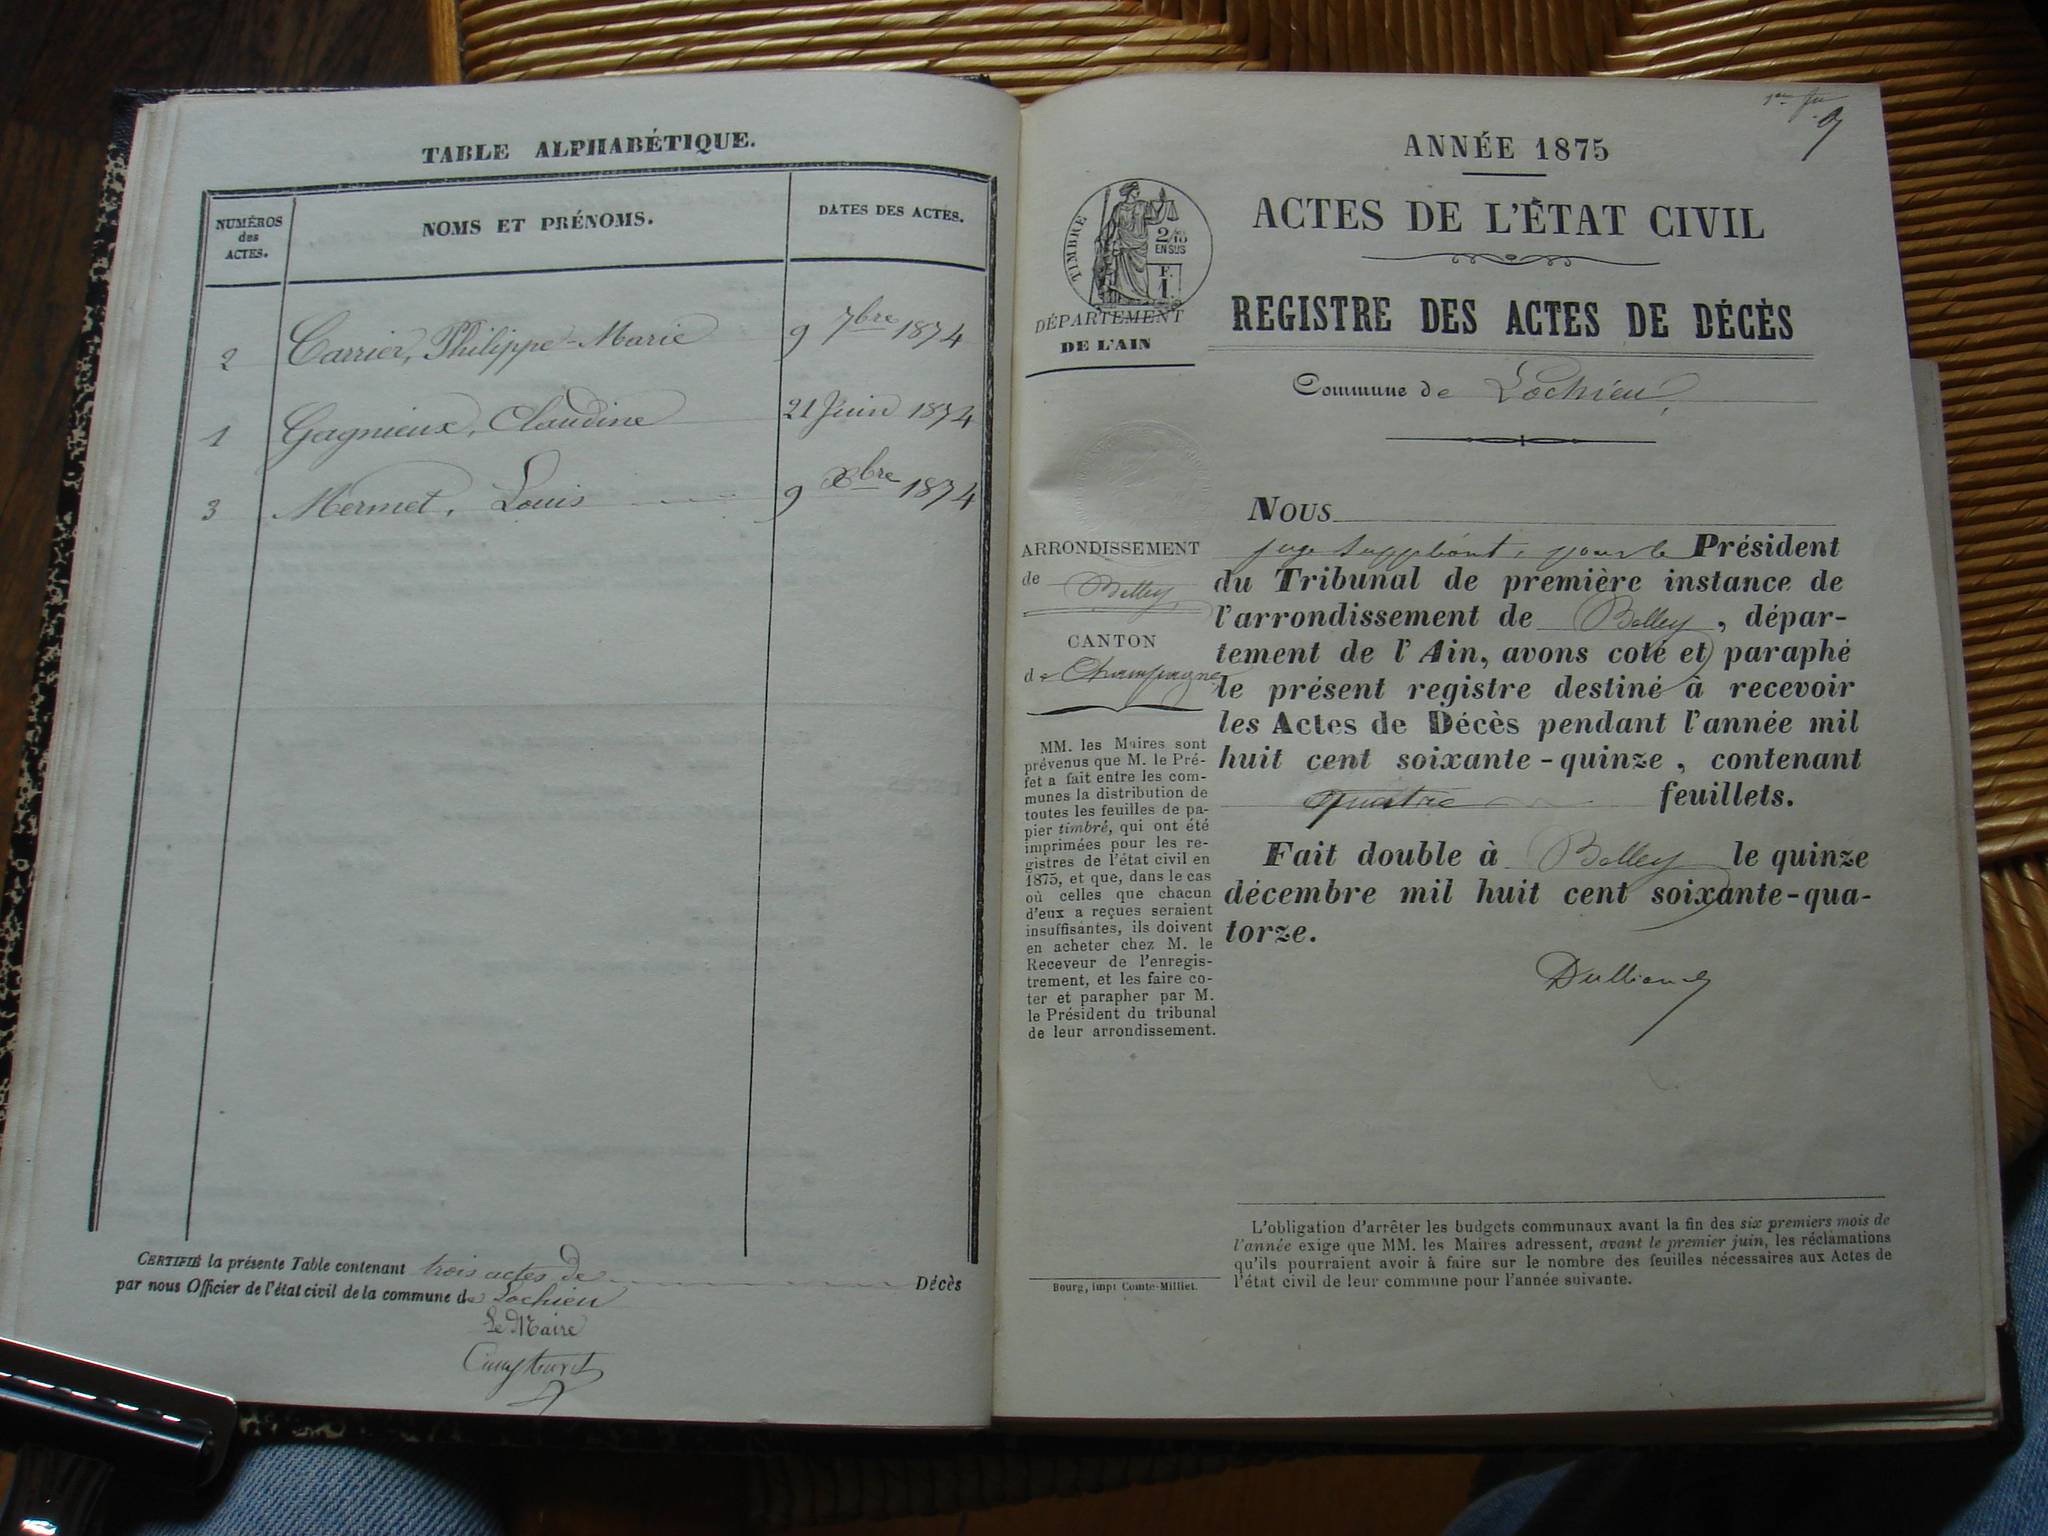 TABLE ALPHABÉTIQUE.
NUMÉROS
des
ACTES.
NOMS ET PRÉNOMS.
DATES DES ACTES.
2 Carrier, Philippe-Marie 9 7bre 1874
1 Gagnieux, Claudine 21 Juin 1874
3 Mermet, Louis 9 Xbre 1874
CERTIFIÉ la présente Table contenant trois actes de Décès
par nous Officier de l'état civil de la commune de Lochieu
Le Maire
ANNÉE 1875
ACTES DE L'ÉTAT CIVIL
TIMBRE
2/10
EN SUS
F.
1
DÉPARTEMENT
DE L'AIN
REGISTRE DES ACTES DE DÉCÈS
Commune de Lochieu
ARRONDISSEMENT
de Belley
CANTON
de Champagne
MM. les Maires sont
prévenus que M. le Pré-
fet a fait entre les com-
munes la distribution de
toutes les feuilles de pa-
pier timbré, qui ont été
imprimées pour les re-
gistres de l'état civil en
1875, et que, dans le cas
où celles que chacun
d'eux a reçues seraient
insuffisantes, ils doivent
en acheter chez M. le
Receveur de l'enregis-
trement, et les faire co-
ter et parapher par M.
le Président du tribunal
de leur arrondissement.
Bourg, impr Comte-Milliet.
NOUS
juge suppléant, pour le Président
du Tribunal de première instance de
l'arrondissement de Belley, dépar-
tement de l'Ain, avons coté et paraphé
le présent registre destiné à recevoir
les Actes de Décès pendant l'année mil
huit cent soixante-quinze, contenant
quatre feuillets.
Fait double à Belley le quinze
décembre mil huit cent soixante-qua-
torze.
L'obligation d'arrêter les budgets communaux avant la fin des six premiers mois de
l'année exige que MM. les Maires adressent, avant le premier juin, les réclamations
qu'ils pourraient avoir à faire sur le nombre des feuilles nécessaires aux Actes de
l'état civil de leur commune pour l'année suivante.